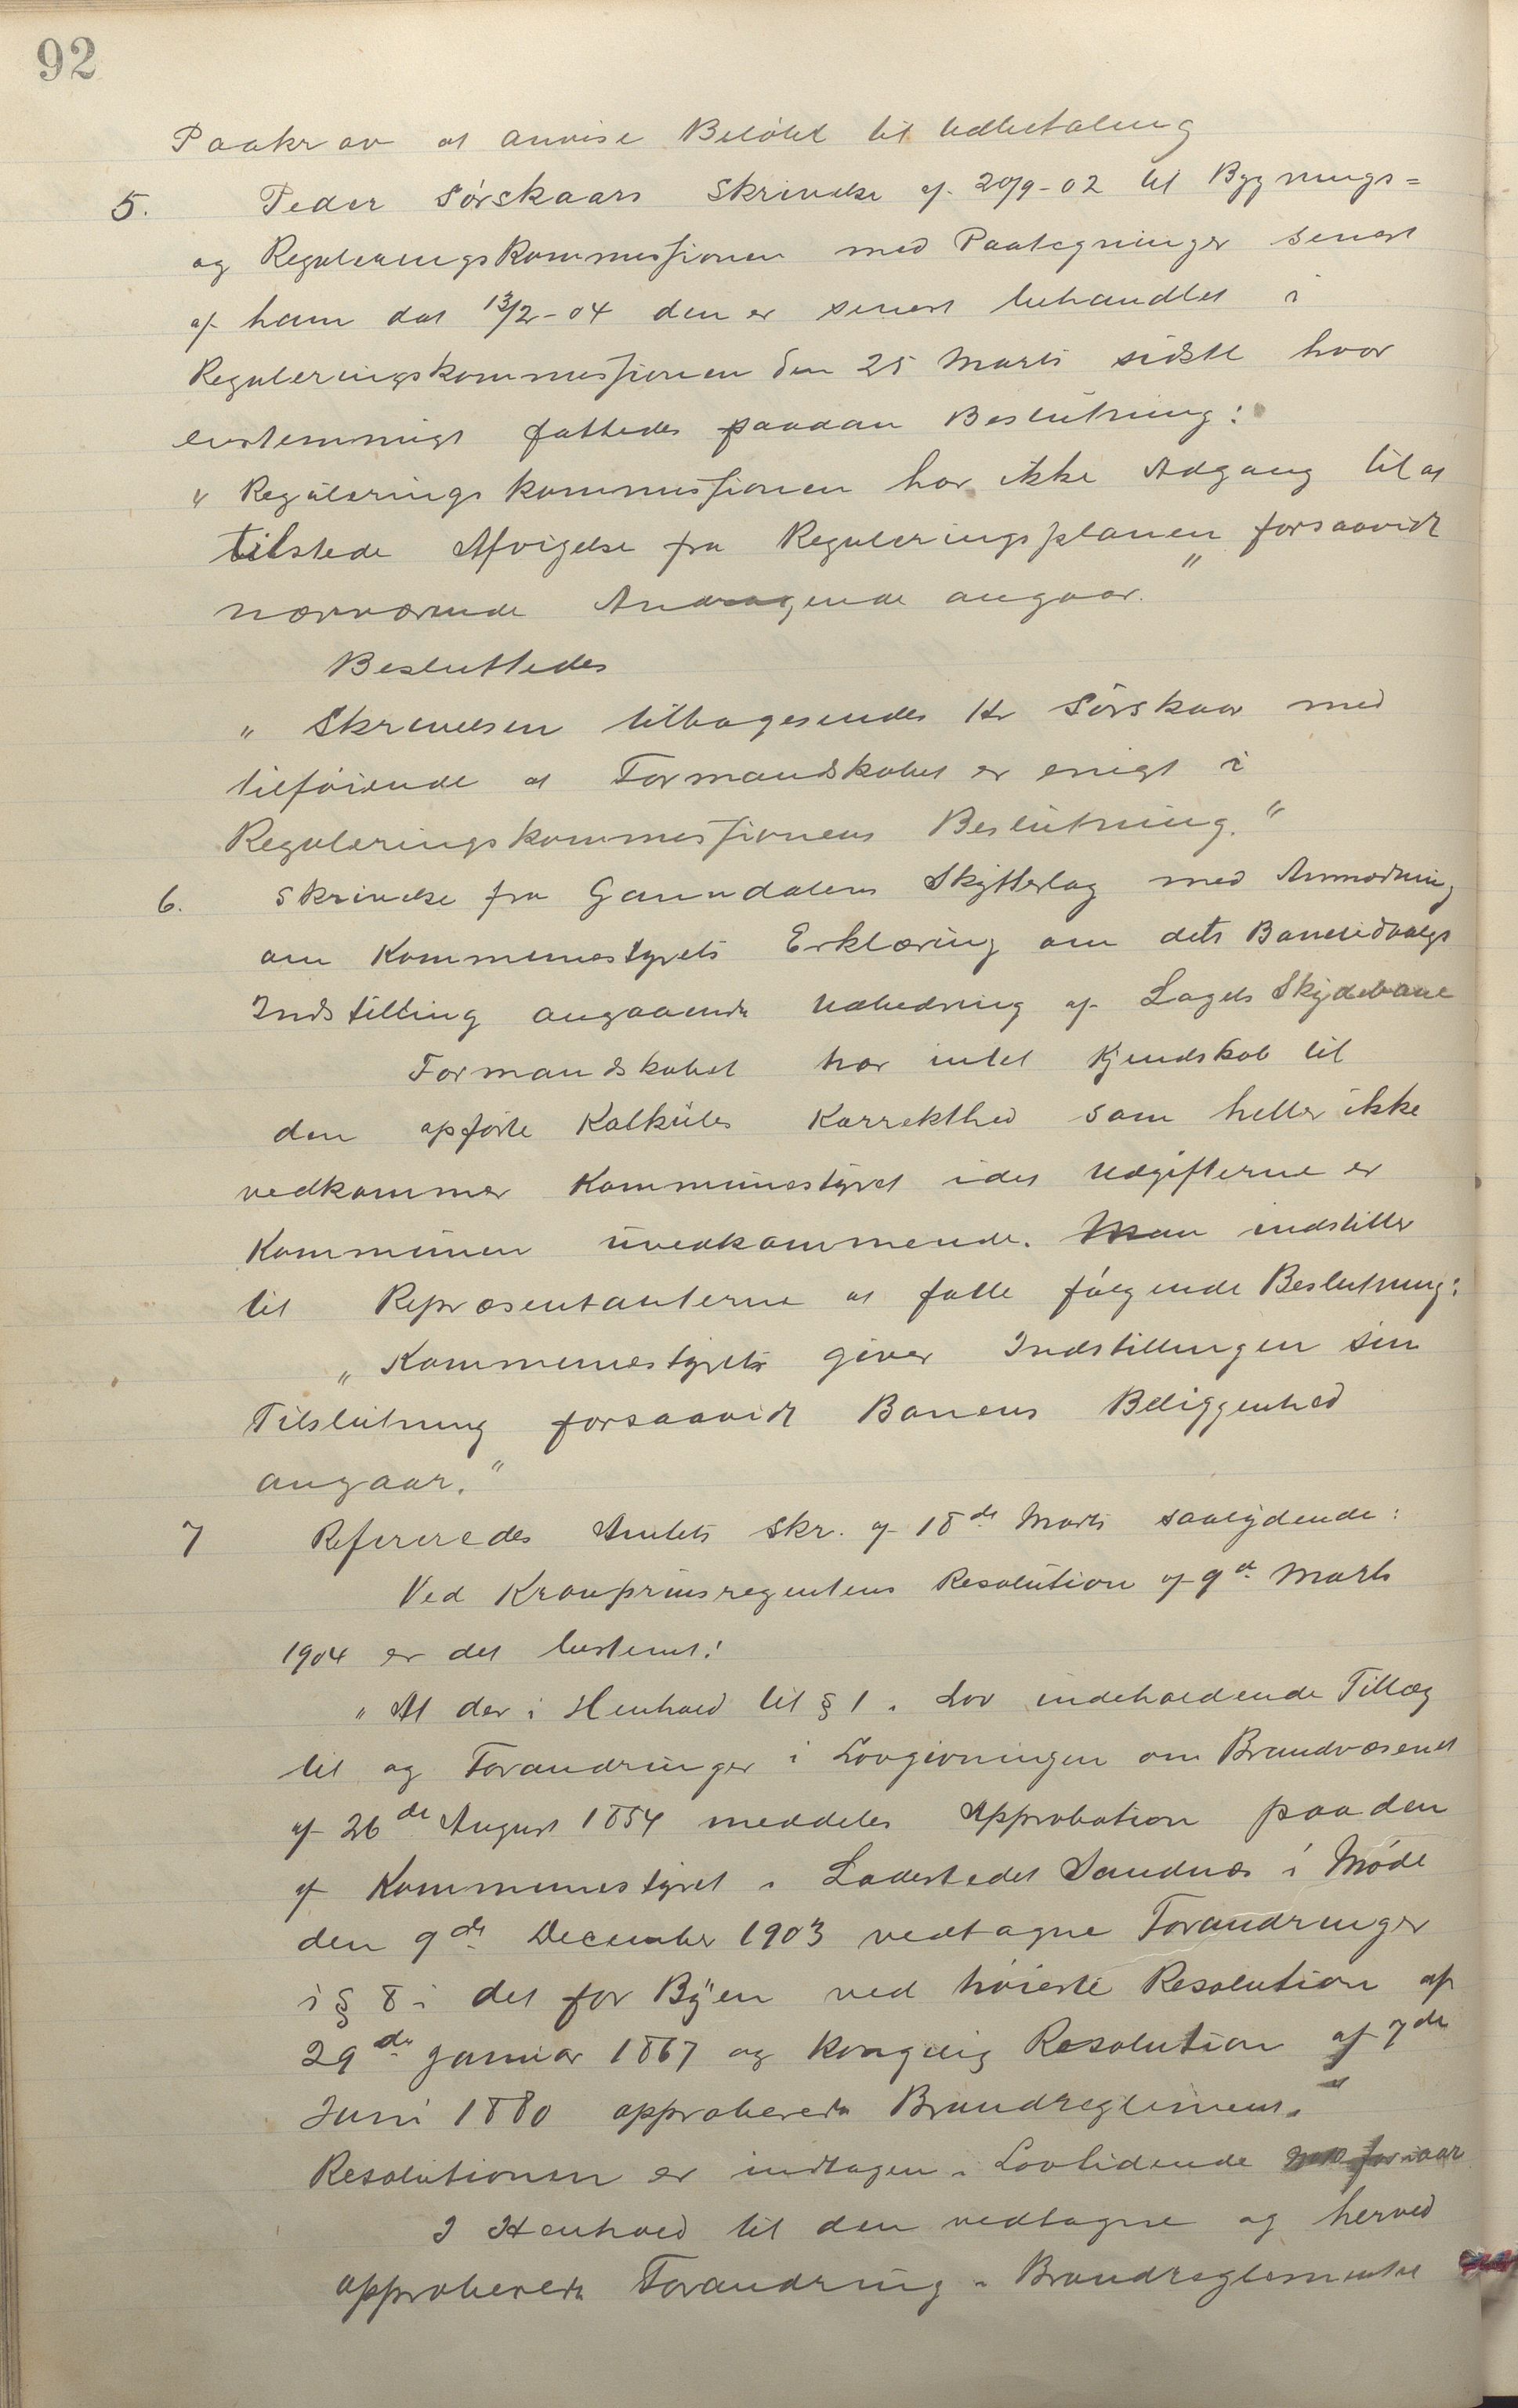 92
Paakrav at anvise Beløbet til Udbetaling
5. Peder Sørskaars Skrivelse af 20/9-02 til Bygnings=
og Reguleringskommissionen med Paategninger senest
af ham dat 13/2-04 den er senest behandlet i
Reguleringskommissionen den 25 Marts sidstl hvor
enstemmigt fattedes saadan Beslutning:
"Reguleringskommissionen har ikke Adgang til at
tilstede Afvigelse fra Reguleringsplanen forsaavidt
nærværende Andragende angaar."
Besluttedes
"Skrivelsen tilbagesendes Hr Sørskaar med
tilføiende at Formandskabet er enigt i
Reguleringskommissionens Beslutning."
6. Skrivelse fra Ganndalens Skytterlag med Anmodning
om Kommunestyrets Erklæring om dets Baneudvalgs
Indstilling angaaende Udbedring af Lagets Skydebane
Formandskabet har intet Kjendskab til
den opførte Kalkules Korrekthed som heller ikke
vedkommer Kommunestyret idet Udgifterne er
Kommunen uvedkommende. Man indstiller
til Repræsentanterne at fatte følgende Beslutning:
"Kommunestyret giver Indstillingen sin
Tilslutning forsaavidt Banens Beliggenhed
angaar."
7 Refereredes Amtets Skr. af 18de Marts saalydende:
Ved Kronprinsregentens Resolution af 9de Marts
1904 er det bestemt:
"At der i Henhold til § 1 i Lov indeholdende Tillæg
til og Forandringer i Lovgivningen om Brandvæsenet
af 26de August 1854 meddeles Approbation paa den
af Kommunestyret i Ladestedet Sandnæs i Møde
den 9de December 1903 vedtagne Forandringer
i § 8 i det for Byen ved høieste Resolution af
29de Januar 1867 og kongelig Resolution af 7de
Juni 1880 approberede Brandreglement."
Resolutionen er indtagen i Lovtidende
I Henhold til den vedtagne og herved
approberede Forandring i Brandreglementet